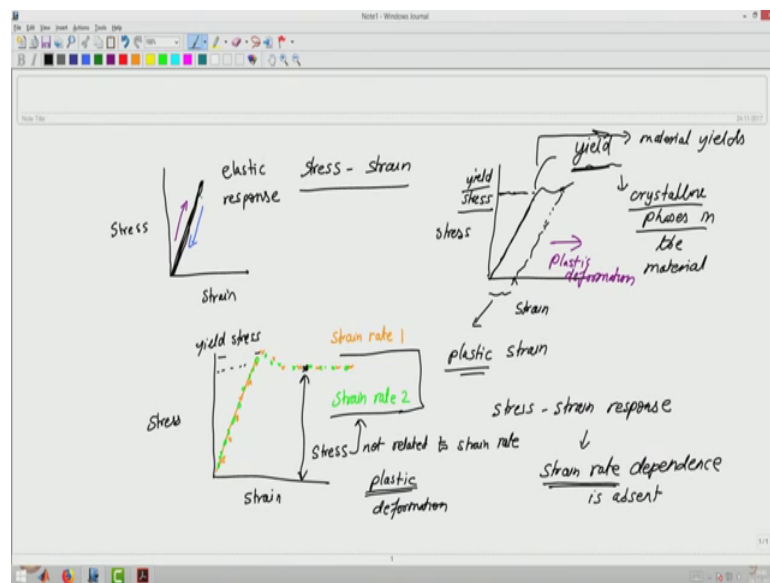 Note1 - Windows Journal
File Edit View Insert Actions Tools Help
Note Title
24-11-2017
elastic
response
Stress - Strain
Stress
Strain
yield
stress
stress
yield
material yields
crystalline
phases in
the
material
Plastic
deformation
Strain
plastic strain
yield stress
Stress
Strain
Strain rate 1
Strain rate 2
stress not related to strain rate
plastic
deformation
stress - strain response
strain rate dependence
is absent
1/1
1